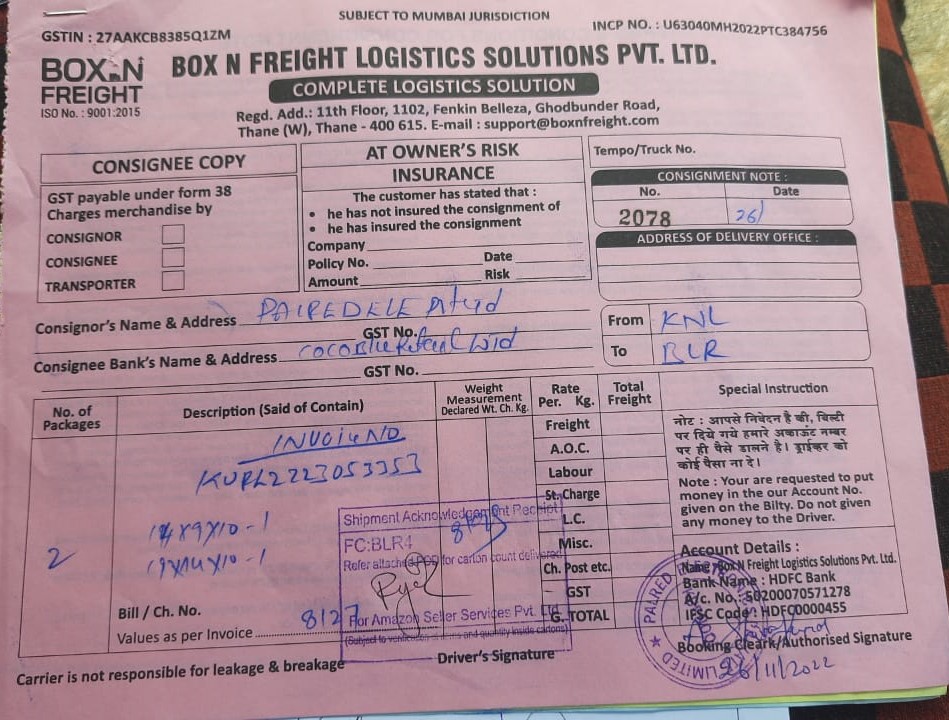 SUBJECT TO MUMBAI JURISDICTION
GSTIN : 27AAKCB8385Q1ZM
INCP NO. : U63040MH2022PTC384756
BOX N FREIGHT
ISO No. : 9001:2015
BOX N FREIGHT LOGISTICS SOLUTIONS PVT. LTD.
COMPLETE LOGISTICS SOLUTION
Regd. Add.: 11th Floor, 1102, Fenkin Belleza, Ghodbunder Road,
Thane (W), Thane - 400 615. E-mail : support@boxnfreight.com
CONSIGNEE COPY
GST payable under form 38
Charges merchandise by
CONSIGNOR
CONSIGNEE
TRANSPORTER
AT OWNER'S RISK
INSURANCE
The customer has stated that :
• he has not insured the consignment of
• he has insured the consignment
Company
Policy No. Date
Amount Risk
Tempo/Truck No.
CONSIGNMENT NOTE :
No. Date
2078 26/
ADDRESS OF DELIVERY OFFICE :
Consignor's Name & Address
GST No.
Consignee Bank's Name & Address
GST No.
From KNL
To BLR
No. of Packages
Description (Said of Contain)
Weight Measurement
Declared Wt. Ch. Kg.
Rate Per. Kg.
Total Freight
Special Instruction
INVOICE NO
2
Freight
A.O.C.
Labour
St. Charge
L.C.
Misc.
Ch. Post etc.
GST
G. TOTAL
नोट : आपसे निवेदन है की, बिल्टी
पर दिये गये हमारे अकाऊंट नम्बर
पर ही पैसे डालने है। ड्राईव्हर को
कोई पैसा ना दे।
Note : Your are requested to put
money in the our Account No.
given on the Bilty. Do not given
any money to the Driver.
Account Details :
Name : Box N Freight Logistics Solutions Pvt. Ltd.
Bank Name : HDFC Bank
A/c. No. 50200070571278
IFSC Code : HDFC0000455
Shipment Acknowledgement Receipt
FC:BLR4
Refer attached POD for carton count delivered
For Amazon Seller Services Pvt. Ltd.
Bill / Ch. No.
Values as per Invoice 8127
Booking Cleark/Authorised Signature
26/11/2022
Driver's Signature
Carrier is not responsible for leakage & breakage